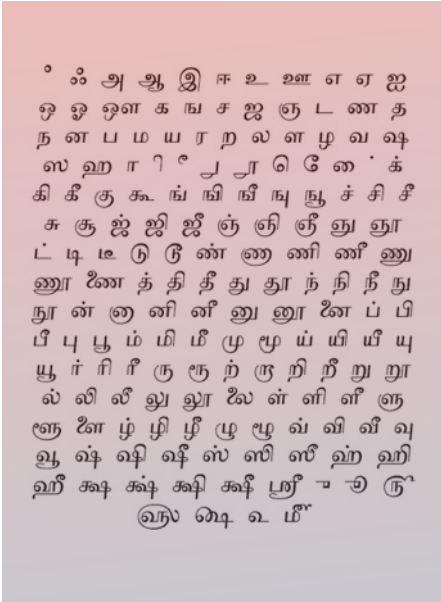 ஂ ஃ அ ஆ இ ஈ உ ஊ எ ஏ ஐ
ஒ ஓ ஔ க ங ச ஜ ஞ ட ண த
ந ன ப ம ய ர ற ல ள ழ வ ஷ
ஸ ஹ ா ி ீ ு ூ ெ ே ை ் க்
கி கீ கு கூ ங் ஙி ஙீ ஙு ஙூ ச் சி சீ
சு சூ ஜ் ஜி ஜீ ஞ் ஞி ஞீ ஞு ஞூ
ட் டி டீ டு டூ ண் ணி ணீ ணு
ணூ த் தி தீ து தூ ந் நி நீ நு
நூ ன் னி னீ னு னூ ப் பி
பீ பு பூ ம் மி மீ மு மூ ய் யி யீ யு
யூ ர் ரி ரீ ரு ரூ ற் றி றீ று றூ
ல் லி லீ லு லூ ள் ளி ளீ ளு
ளூ ழ் ழி ழீ ழு ழூ வ் வி வீ வு
வூ ஷ் ஷி ஷீ ஸ் ஸி ஸீ ஹ் ஹி
ஹீ க்ஷ க்ஷ் க்ஷி க்ஷீ ஸ்ரீ